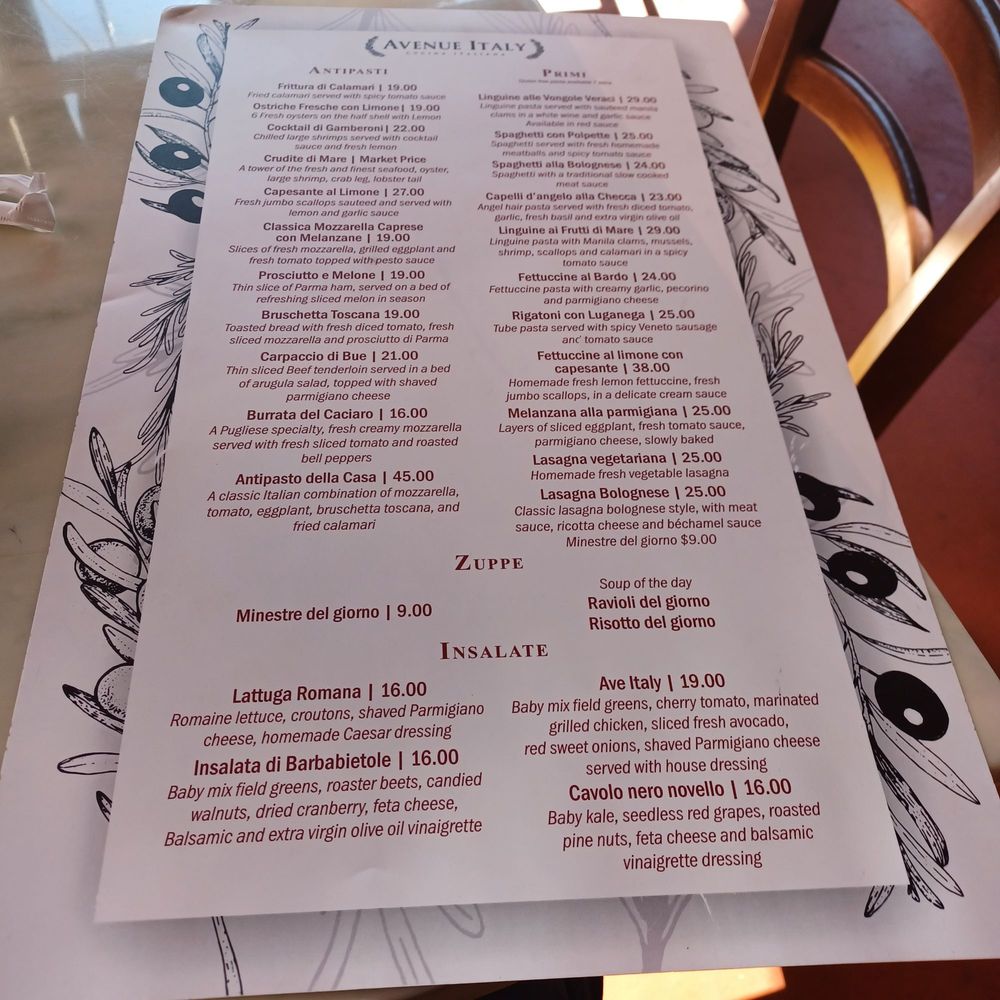 AVENUE ITALY
CUCINA ITALIANA
ANTIPASTI
Frittura di Calamari | 19.00
Fried calamari served with spicy tomato sauce
Ostriche Fresche con Limone | 19.00
6 Fresh oysters on the half shell with Lemon
Cocktail di Gamberoni | 22.00
Chilled large shrimps served with cocktail
sauce and fresh lemon
Crudite di Mare | Market Price
A tower of the fresh and finest seafood, oyster,
large shrimp, crab leg, lobster tail
Capesante al Limone | 27.00
Fresh jumbo scallops sauteed and served with
lemon and garlic sauce
Classica Mozzarella Caprese
con Melanzane | 19.00
Slices of fresh mozzarella, grilled eggplant and
fresh tomato topped with pesto sauce
Prosciutto e Melone | 19.00
Thin slice of Parma ham, served on a bed of
refreshing sliced melon in season
Bruschetta Toscana 19.00
Toasted bread with fresh diced tomato, fresh
sliced mozzarella and prosciutto di Parma
Carpaccio di Bue | 21.00
Thin sliced Beef tenderloin served in a bed
of arugula salad, topped with shaved
parmigiano cheese
Burrata del Caciaro | 16.00
A Pugliese specialty, fresh creamy mozzarella
served with fresh sliced tomato and roasted
bell peppers
Antipasto della Casa | 45.00
A classic Italian combination of mozzarella,
tomato, eggplant, bruschetta toscana, and
fried calamari
PRIMI
Gluten free pasta available
Linguine alle Vongole Veraci | 29.00
Linguine pasta served with sauteed manila
clams in a white wine and garlic sauce
Available in red sauce
Spaghetti con Polpette | 25.00
Spaghetti served with fresh homemade
meatballs and spicy tomato sauce
Spaghetti alla Bolognese | 24.00
Spaghetti with a traditional slow cooked
meat sauce
Capelli d'angelo alla Checca | 23.00
Angel hair pasta served with fresh diced tomato,
garlic, fresh basil and extra virgin olive oil
Linguine ai Frutti di Mare | 29.00
Linguine pasta with Manila clams, mussels,
shrimp, scallops and calamari in a spicy
tomato sauce
Fettuccine al Bardo | 24.00
Fettuccine pasta with creamy garlic, pecorino
and parmigiano cheese
Rigatoni con Luganega | 25.00
Tube pasta served with spicy Veneto sausage
anc' tomato sauce
Fettuccine al limone con
capesante | 38.00
Homemade fresh lemon fettuccine, fresh
jumbo scallops, in a delicate cream sauce
Melanzana alla parmigiana | 25.00
Layers of sliced eggplant, fresh tomato sauce,
parmigiano cheese, slowly baked
Lasagna vegetariana | 25.00
Homemade fresh vegetable lasagna
Lasagna Bolognese | 25.00
Classic lasagna bolognese style, with meat
sauce, ricotta cheese and béchamel sauce
Minestre del giorno $9.00
ZUPPE
Minestre del giorno | 9.00
Soup of the day
Ravioli del giorno
Risotto del giorno
INSALATE
Lattuga Romana | 16.00
Romaine lettuce, croutons, shaved Parmigiano
cheese, homemade Caesar dressing
Insalata di Barbabietole | 16.00
Baby mix field greens, roaster beets, candied
walnuts, dried cranberry, feta cheese,
Balsamic and extra virgin olive oil vinaigrette
Ave Italy | 19.00
Baby mix field greens, cherry tomato, marinated
grilled chicken, sliced fresh avocado,
red sweet onions, shaved Parmigiano cheese
served with house dressing
Cavolo nero novello | 16.00
Baby kale, seedless red grapes, roasted
pine nuts, feta cheese and balsamic
vinaigrette dressing